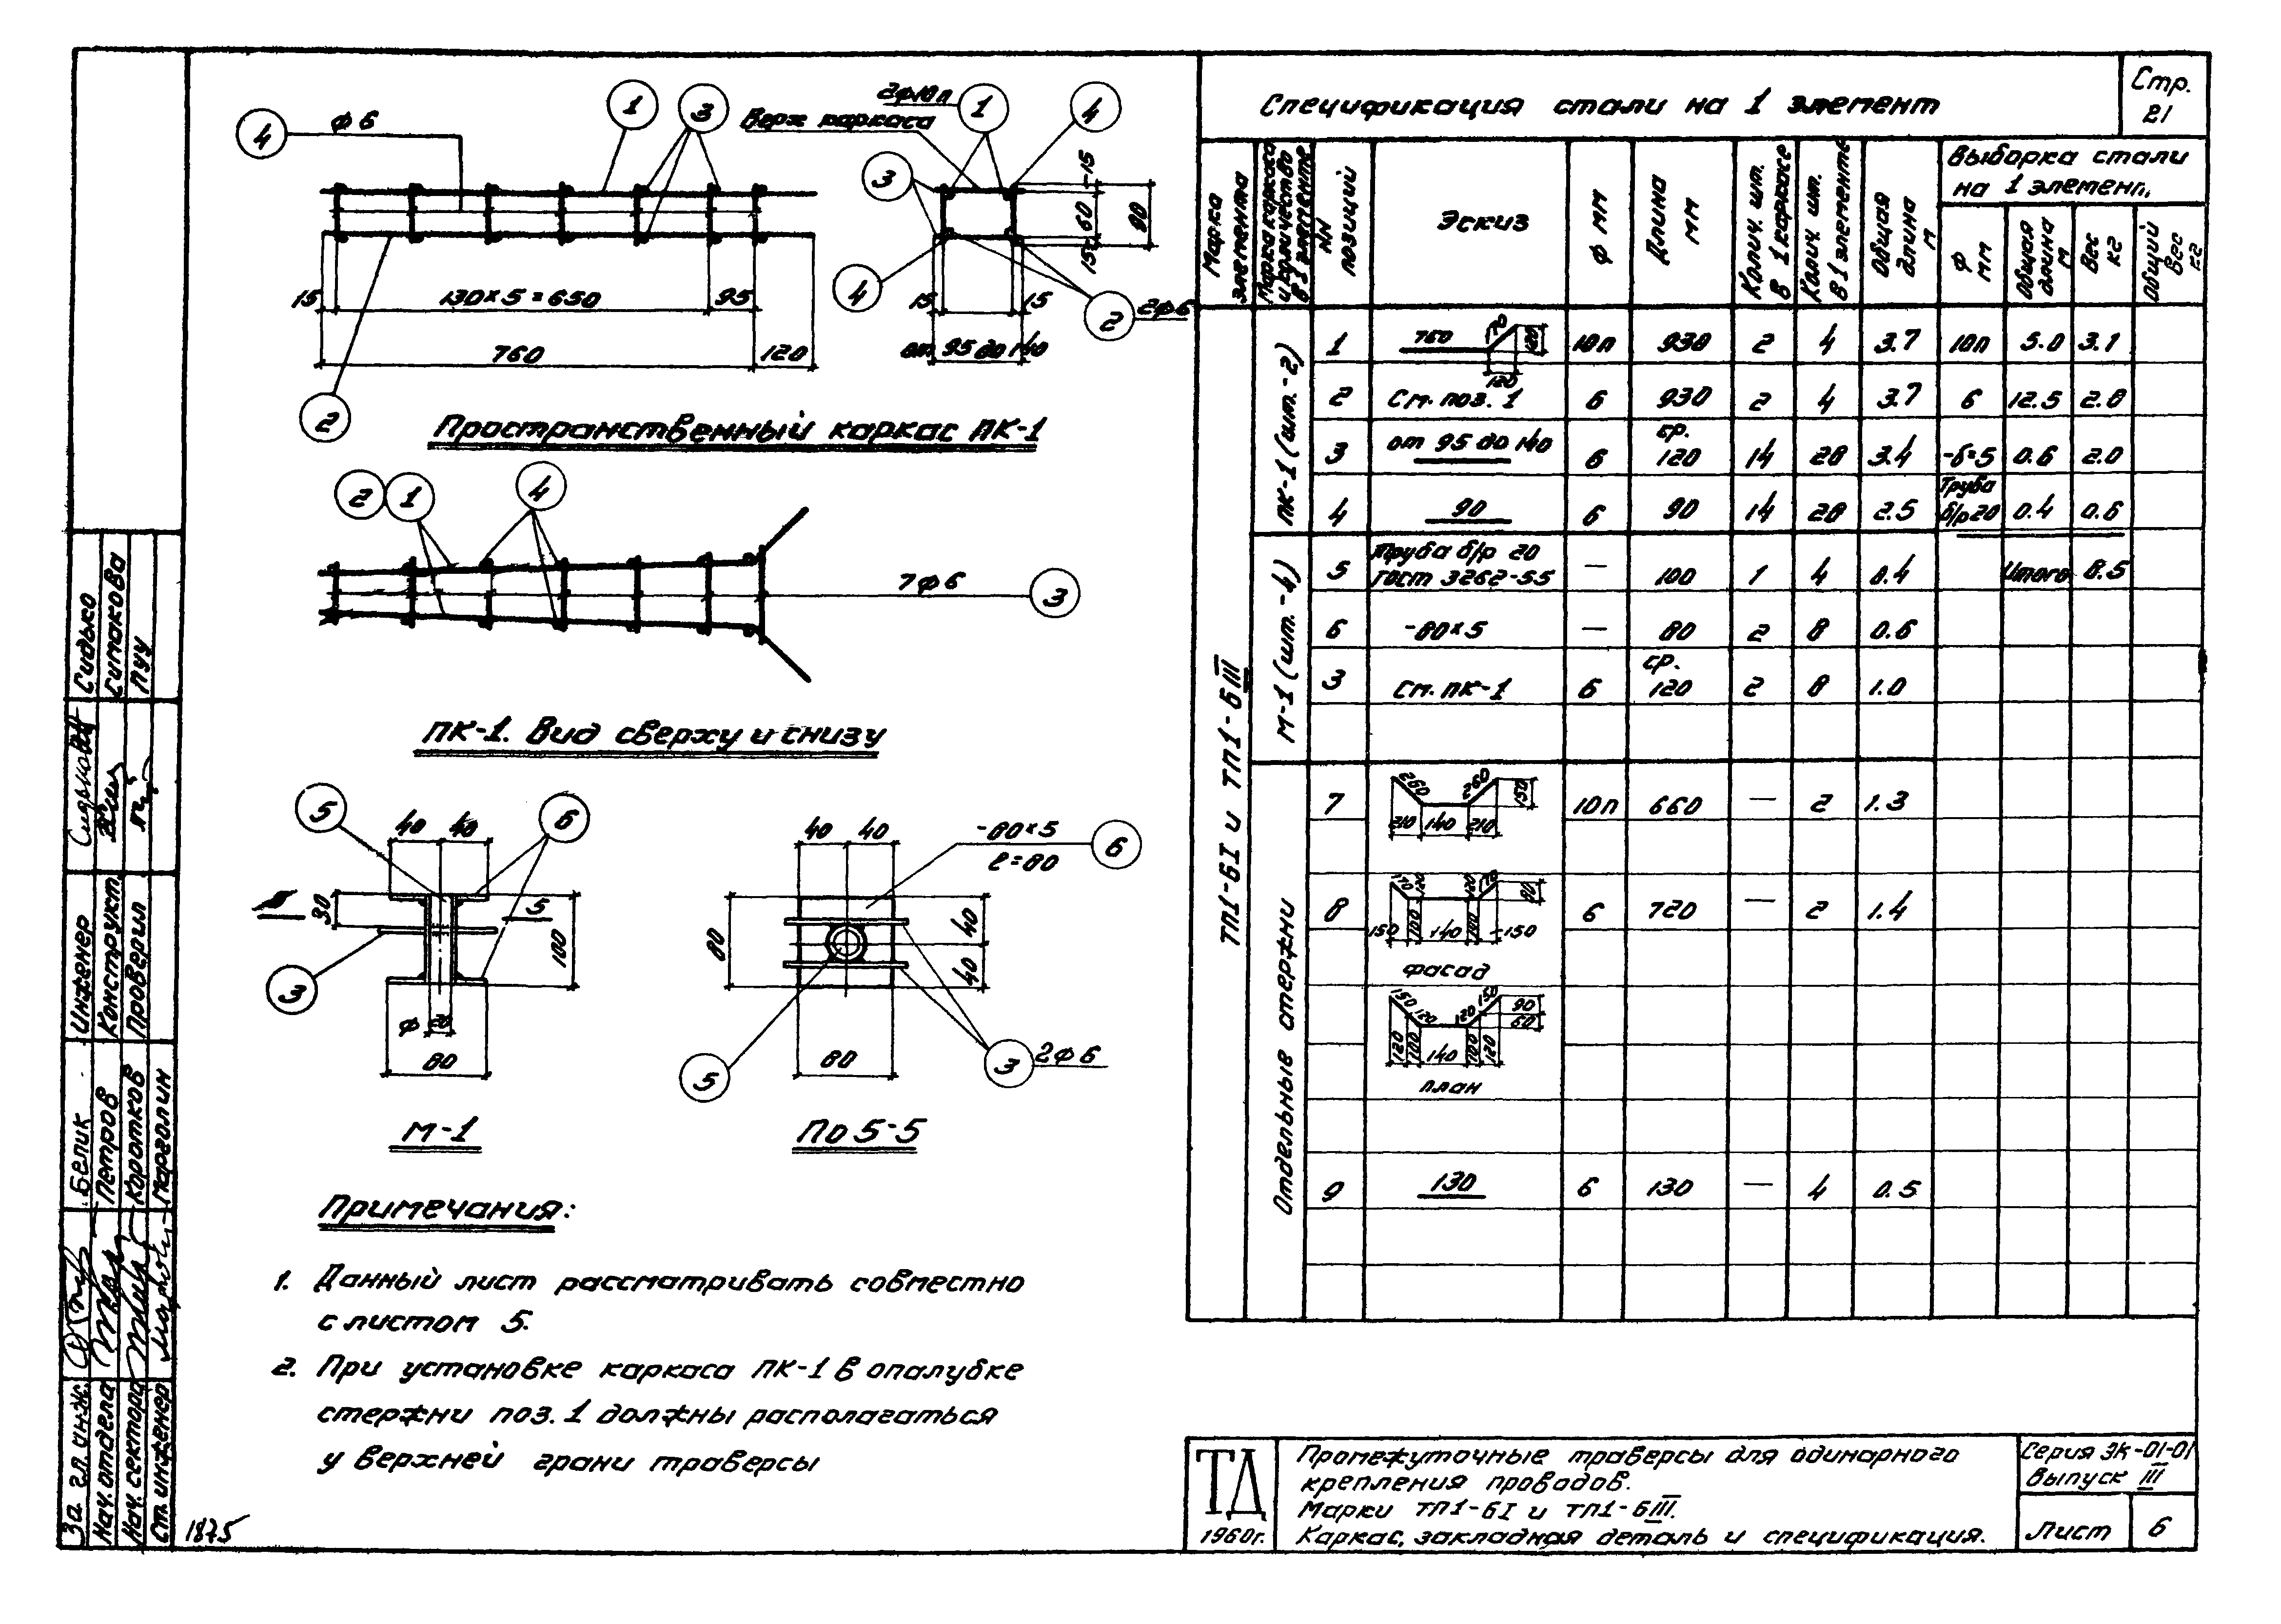 Спецификация стали на 1 элемент
Стр.
21
Марка элемента
Марка каркаса и количество в 1 элементе
NN позиций
Эскиз
Ф мм
Длина мм
Колич. шт. в 1 каркасе
Колич. шт. в 1 элементе
Общая длина м
Выборка стали
на 1 элемент
Ф мм
Общая длина м
Вес кг
Общий вес кг
ТП1-6I и ТП1-6III
ПК-1 (шт.-2)
1 760 170 120 120 10п 930 2 4 3.7 10п 5.0 3.1
2 См. поз. 1 6 930 2 4 3.7 6 12.5 2.8
3 от 95 до 140 6 ср. 120 14 28 3.4 -δ=5 0.6 2.0
4 90 6 90 14 28 2.5 Труба б/р 20 0.4 0.6
М-1 (шт.-4)
5 Труба б/р 20 ГОСТ 3262-55 — 100 1 4 0.4 Итого 8.5
6 -80×5 — 80 2 8 0.6
3 См. ПК-1 6 ср. 120 2 8 1.0
Отдельные стержни
7 260 260 150 210 140 210 10п 660 — 2 1.3
8 170 120 120 170 90 150 100 140 100 150 6 720 — 2 1.4
фасад
150 120 120 150 90 60 120 100 140 100 120
план
9 130 6 130 — 4 0.5
4
ф 6
1
3
2ф10п
1
4
Верх каркаса
3
15
60
15
90
15
130×5=650
95
4
15
15
2
2ф6
760
120
от 95 до 140
2
Пространственный каркас ПК-1
2
1
4
7ф6
3
ПК-1. Вид сверху и снизу
5
40
40
6
40
40
-80×5
ℓ=80
6
30
5
100
80
40
40
3
ф 20
80
5
80
3
2ф6
М-1
По 5-5
Примечания:
1. Данный лист рассматривать совместно
с листом 5.
2. При установке каркаса ПК-1 в опалубке
стержни поз. 1 должны располагаться
у верхней грани траверсы
ТД
1960г.
Промежуточные траверсы для одинарного
крепления проводов.
Марки ТП1-6I и ТП1-6III.
Каркас, закладная деталь и спецификация.
Серия ЭК-01-01
Выпуск III
Лист
6
Сидько
Симакова
Пуу
Инженер
Конструкт.
Проверил
Белик
Петров
Коротков
Марголин
За гл. инж.
Нач. отдела
Нач. сектора
Ст. инженер
1875